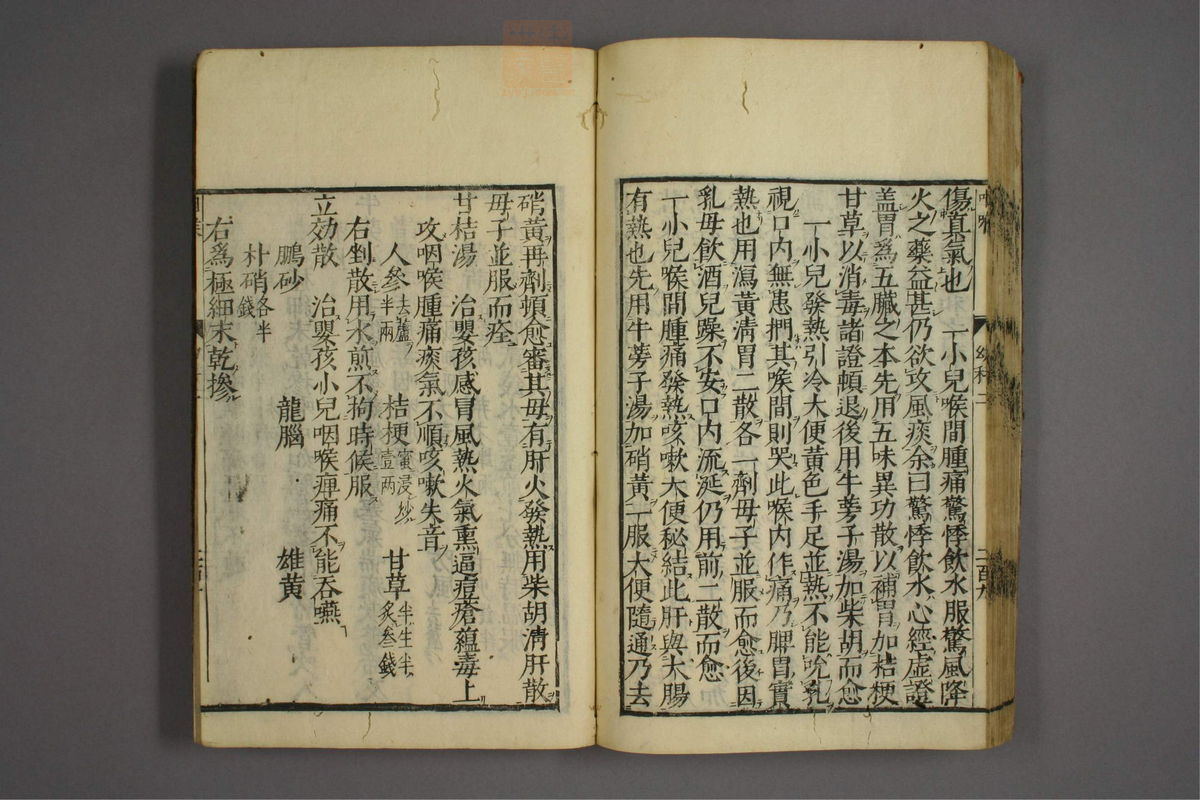 傷真氣也　一小兒喉間腫痛驚悸飲水服驚風降
火之藥益甚仍欲攻風痰余曰驚悸飲水心經虛證
蓋胃爲五臟之本先用五味異功散以補胃加桔梗
甘草以消毒諸證頓退後用牛蒡子湯加柴胡而愈
一小兒發熱引冷大便黃色手足並熱不能吮乳
視口內無恙捫其喉間則哭此喉內作痛乃脾胃實
熱也用瀉黃清胃二散各一劑母子並服而愈後因
乳母飲酒兒躁不安口內流涎仍用前二散而愈
一小兒喉間腫痛發熱咳嗽大便秘結此肝與大腸
有熱也先用牛蒡子湯加硝黃一服大便隨通乃去
幼科二
二百九
硝黃再劑頓愈審其母有肝火發熱用柴胡清肝散
母子並服而痊
甘桔湯　治嬰孩感冒風熱火氣熏逼痘瘡蘊毒上
攻咽喉腫痛痰氣不順咳嗽失音
人參去蘆半兩　桔梗蜜浸炒壹兩　甘草半生半炙叁錢
右剉散用水煎不拘時候服
立効散　治嬰孩小兒咽喉痺痛不能吞嚥
鵬砂　龍腦　雄黃
朴硝各半錢
右爲極細末乾摻